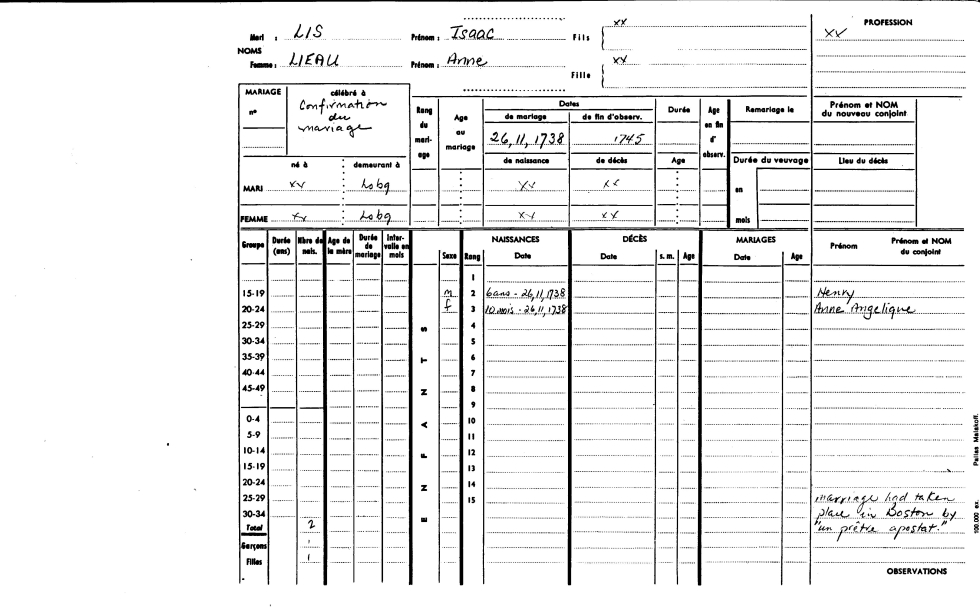 xx
PROFESSION
Mari : LIS Prénom : Isaac Fils xv
NOMS
Femme : LIEAU Prénom : Anne xv
Fille
MARIAGE célébré à
n° Confirmation
du
mariage
Rang du mari-age
Age au mariage
Dates
de mariage de fin d'observ.
26, 11, 1738 1745
de naissance de décès
Durée
Age
Age en fin d' observ.
Remariage le
Prénom et NOM
du nouveau conjoint
Durée du veuvage
Lieu du décès
né à demeurant à
MARI xv Lsbg xv xx
en
FEMME xv Lsbg xv xx
mois
Groupe Durée (ans) Nbre de nais. Age de la mère Durée de mariage Inter-valle en mois
Sexe Rang NAISSANCES Date DÉCÈS Date s. m. Age MARIAGES Date Age Prénom Prénom et NOM du conjoint
1
15-19 m 2 6 ans - 26, 11, 1738 Henry
20-24 f 3 10 mois - 26, 11, 1738 Anne Angelique
25-29 4
30-34 5
35-39 6
40-44 7
45-49 8
9
0-4 10
5-9 11
10-14 12
15-19 13
20-24 14
25-29 15 marriage had taken
30-34 place in Boston by
Total 2 "un prêtre apostat."
Garçons 1
Filles 1
OBSERVATIONS
ENFANTS
100.000 ex. Pallas Malakoff.